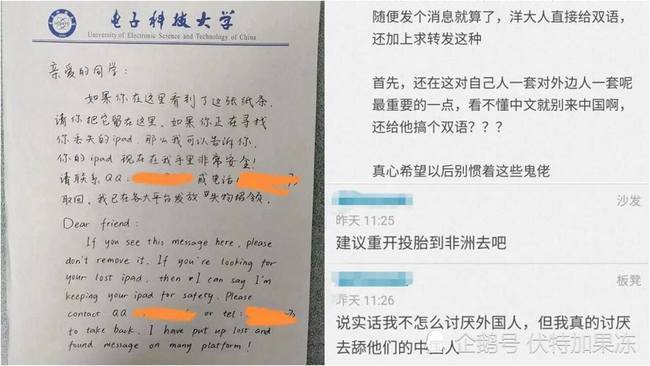 电子科技大学
University of Electronic Science and Technology of China
亲爱的同学:
如果你在这里看到了这张纸条,
请你把它留在这里。如果你正在寻找
你丢失的ipad,那么我可以告诉你,
你的ipad现在在我手里非常安全!
请联系QQ: 或电话:
取回,我已在各大平台发放“失物招领。
Dear friend:
If you see this message here, please
don't remove it. If you're looking for
your lost ipad, then I can say I'm
keeping your ipad for safety. Please
contact QQ or tel:
to take back. I have put up lost and
found message on many platform!
随便发个消息就算了,洋大人直接给双语,
还加上求转发这种
首先,还在这对自己人一套对外边人一套呢
最重要的一点,看不懂中文就别来中国啊,
还给他搞个双语???
真心希望以后别惯着这些鬼佬
沙发
昨天 11:25
建议重开投胎到非洲去吧
板凳
昨天 11:26
说实话我不怎么讨厌外国人,但我真的讨厌
去舔他们的中二人
企鹅号 伏特加果冻